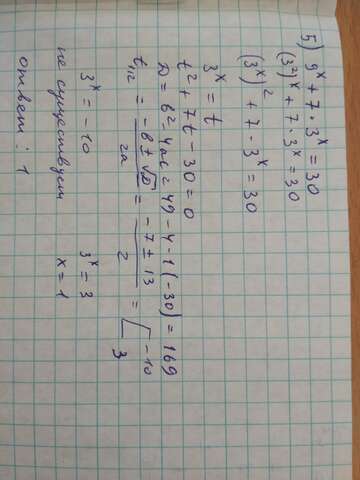 5) 9^x + 7 · 3^x = 30
(3²)^x + 7 · 3^x = 30
(3^x)² + 7 · 3^x = 30
3^x = t
t² + 7t - 30 = 0
D = b² - 4ac = 49 - 4 · 1 (-30) = 169
t₁,₂ = (-b ± √D)/2a = (-7 ± 13)/2 = [-10
3
3^x = -10 3^x = 3
не существует x = 1
ответ: 1